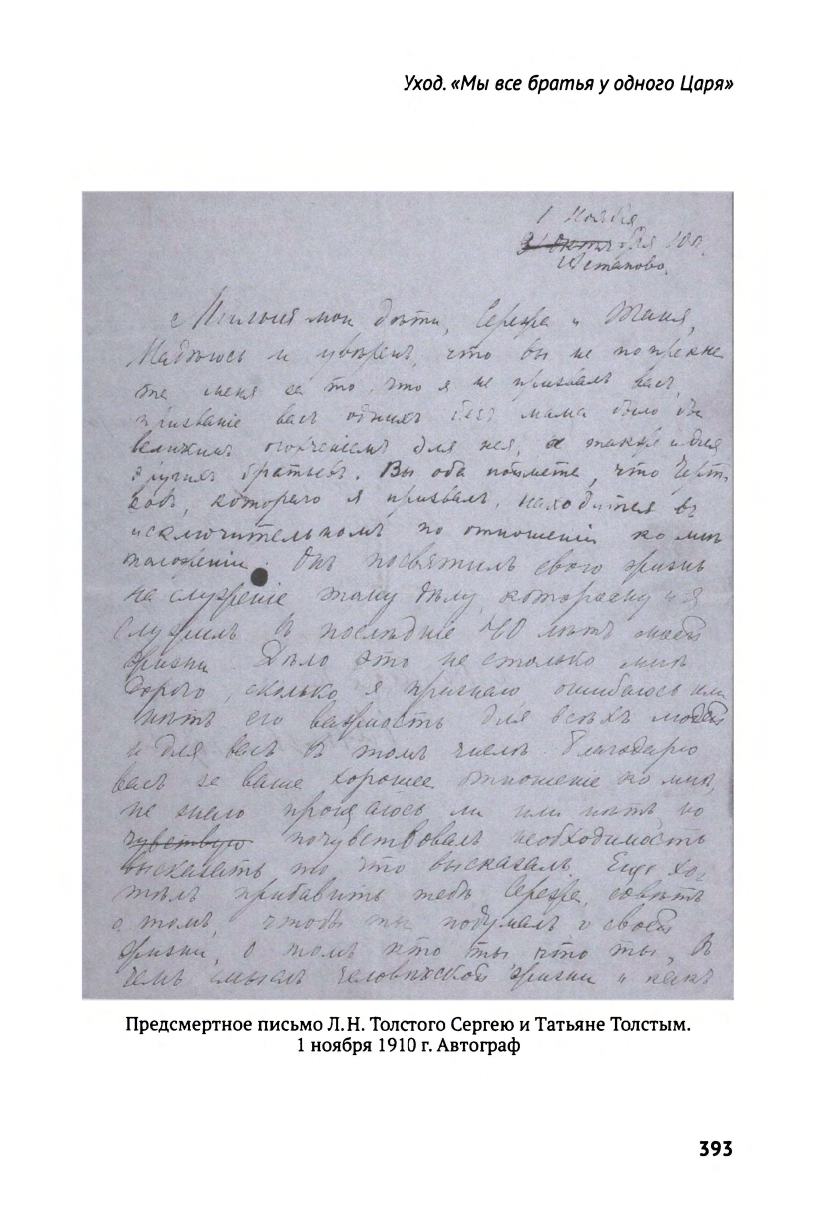 Уход. «Мы все братья у одного Царя»
1 Ноября
31 Октября 10 г.
Астапово.
Милыя мои дѣти, Сережа и Таня,
Надѣюсь и увѣренъ, что вы не попрекне
те меня за то, что я не призвалъ васъ.
призваніе васъ однихъ безъ мама было бы
великимъ огорченіемъ для нея, а также и для
другихъ братьевъ. Вы оба поймете, что Черт
ковъ, котораго я призвалъ, находится въ
исключительномъ по отношеніи ко мнѣ
положеніи. Онъ посвятилъ свою жизнь
на служеніе тому дѣлу, которому и я
служилъ въ последніе 40 лѣтъ моей
жизни. Дѣло это не столько мнѣ
дорого, сколько я признаю ошибаюсь или
нѣтъ его важность для всѣхъ людей
и для васъ въ томъ числѣ. Благодарю
васъ за ваше хорошее отношеніе ко мнѣ,
не знаю прощаюсь ли или нѣтъ, но
чувствую почувствовалъ необходимость
высказать то, что высказалъ. Еще хо
тѣлъ прибавить тебѣ Сережа, совѣтъ
о томъ, чтобы ты подумалъ о своей
жизни, о томъ кто ты, что ты, въ
чемъ смыслъ человѣческой жизни и какъ
Предсмертное письмо Л. Н. Толстого Сергею и Татьяне Толстым.
1 ноября 1910 г. Автограф
393